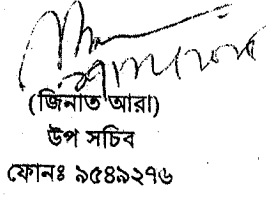 (জিনাত আরা)
উপ সচিব
ফোনঃ ৯৫৪৯২৭৬